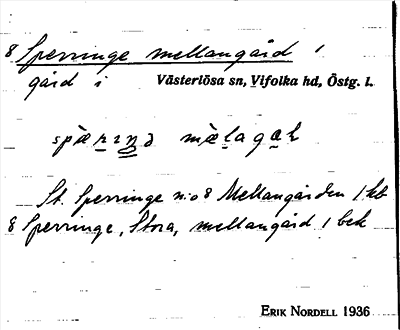 8 Sperringe mellangård 1
gård i Västerlösa sn, Vifolka hd, Östg. l.
spæ̀rıŋə mæ̀lagæɫ
St. Sperringe n:o 8 Mellangården 1 kb
8 Sperringe, Stora, mellangård 1 bek
ERIK NORDELL 1936